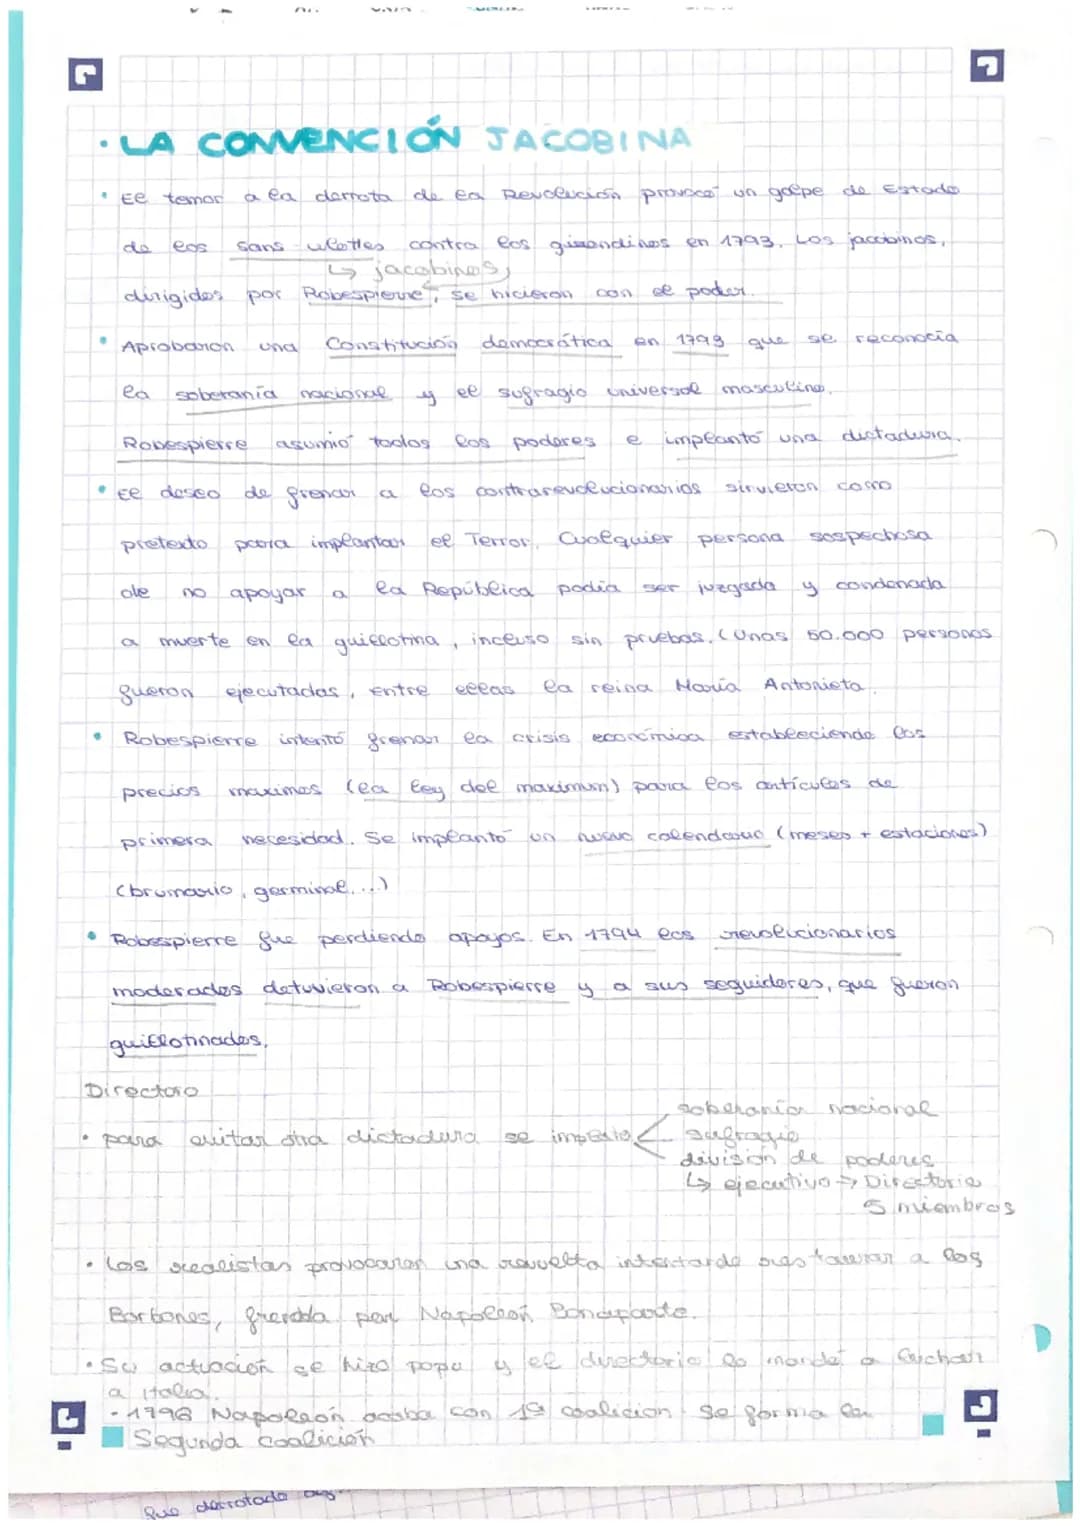 · LA CONVENCIÓN JACOBINA
• El temor a la derrota de la Revolución provocó un golpe de Estado
de los sans culottes contra los girondinos en 1793. Los jacobinos,
↳ jacobinos,
dirigidos por Robespierre, se hicieron con el poder.
• Aprobaron una Constitución democrática en 1793 que se reconocía
la soberanía nacional y el sufragio universal masculino.
Robespierre asumió todos los poderes e implantó una dictadura.
• El deseo de frenar a los contrarevolucionarios sirvieron como
pretexto para implantar el Terror. Cualquier persona sospechosa
de no apoyar a la República podía ser juzgada y condenada
a muerte en la guillotina, incluso sin pruebas. (Unas 50.000 personas
fueron ejecutadas, entre ellas la reina María Antonieta.
• Robespierre intentó frenar la crisis económica estableciendo los
precios maximos (la ley del maximum) para los artículos de
primera necesidad. Se implantó un nuevo calendario (meses + estaciones)
(brumario, germinal, ...)
• Robespierre fue perdiendo apoyos. En 1794 los revolucionarios
moderados detuvieron a Robespierre y a sus seguidores, que fueron
guillotinados.
Directoro
• para evitar otra dictadura se impuso < soberanía nacional
sufragio
división de poderes
↳ ejecutivo → Directorio
5 miembros
• Los realistas provocaron una revuelta intentando restaurar a los
Borbones, frenada por Napoleón Bonaparte.
• Su actuación se hizo popu y el directorio lo mandó a luchar
a Italia.
- 1798 Napoleón acaba con 1ª coalición. Se forma la
Segunda Coalición
que derrotado